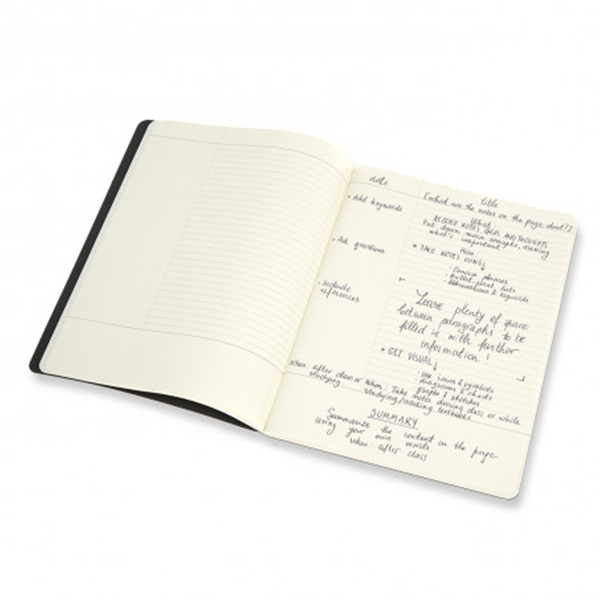 date
title
[what are the notes on the page about?]
• Add keywords
What:
RECORD NOTES, IDEAS AND THOUGHTS
Put down main concepts, making
what's important
• Ask questions
How:
• TAKE NOTES USING ↓
- Concise phrases
- Bullet-point lists
- Abbreviations & keywords
• Include
references
Leave plenty of space
between paragraphs to be
filled in with further
information!
• GET VISUAL ↓
- Use icons & symbols
- diagrams & charts
- graphs & sketches
When: after class or
studying
When: Take notes during class or while
studying/reading textbooks
SUMMARY
Summarize the content on the page
using your own words
when: after class